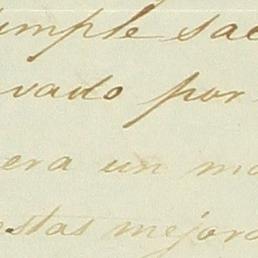 imple sac
vado por
era un mo
estas mejora